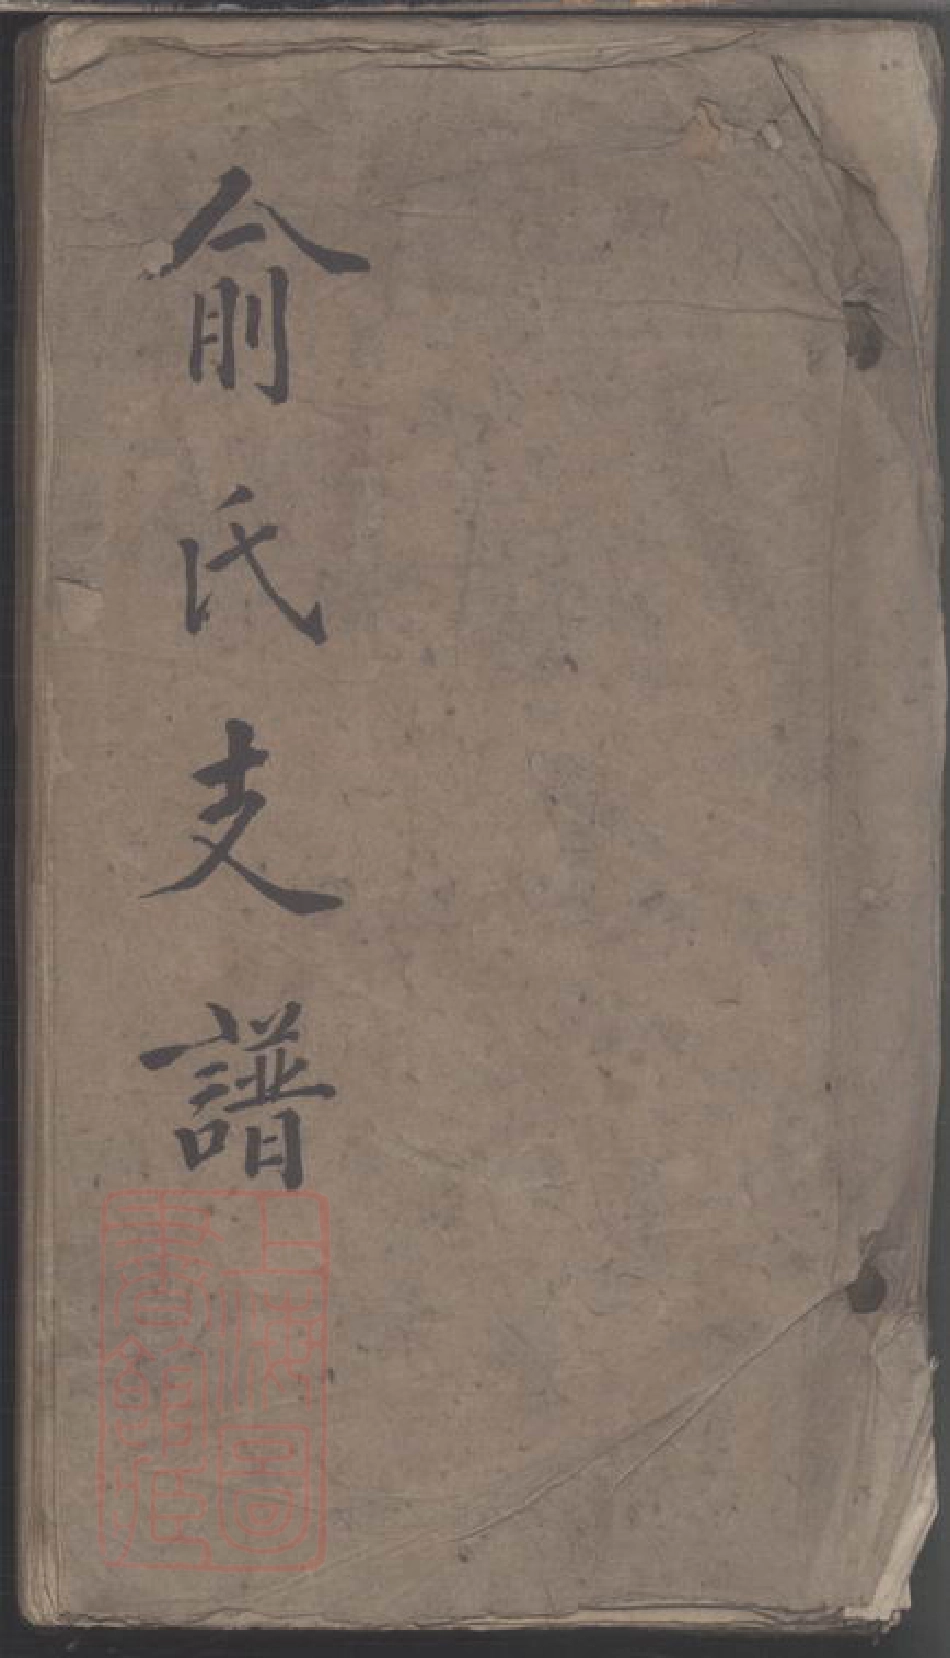 俞氏支譜
上海圖
書館藏